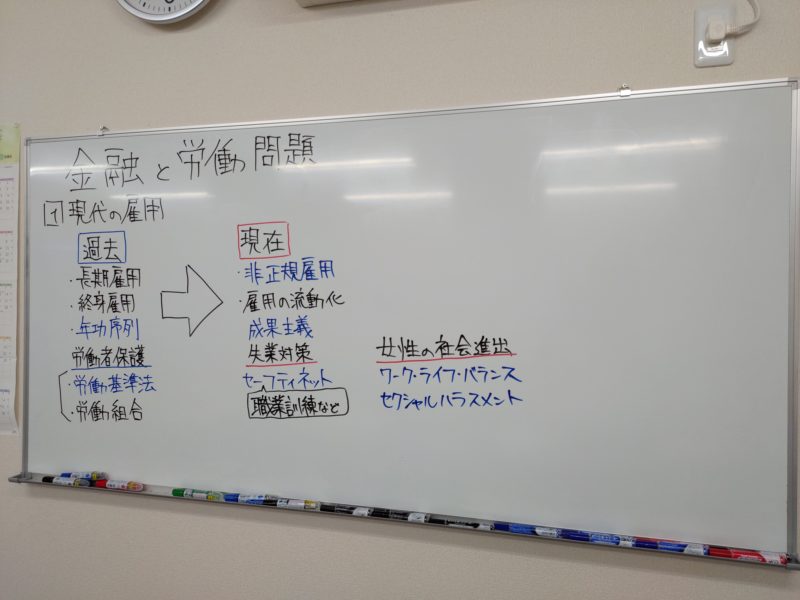 金融と労働問題
1 現代の雇用
過去
・長期雇用
・終身雇用
・年功序列
労働者保護
・労働基準法
・労働組合
現在
・非正規雇用
・雇用の流動化
成果主義
失業対策
セーフティネット
職業訓練など
女性の社会進出
ワーク・ライフ・バランス
セクシャルハラスメント